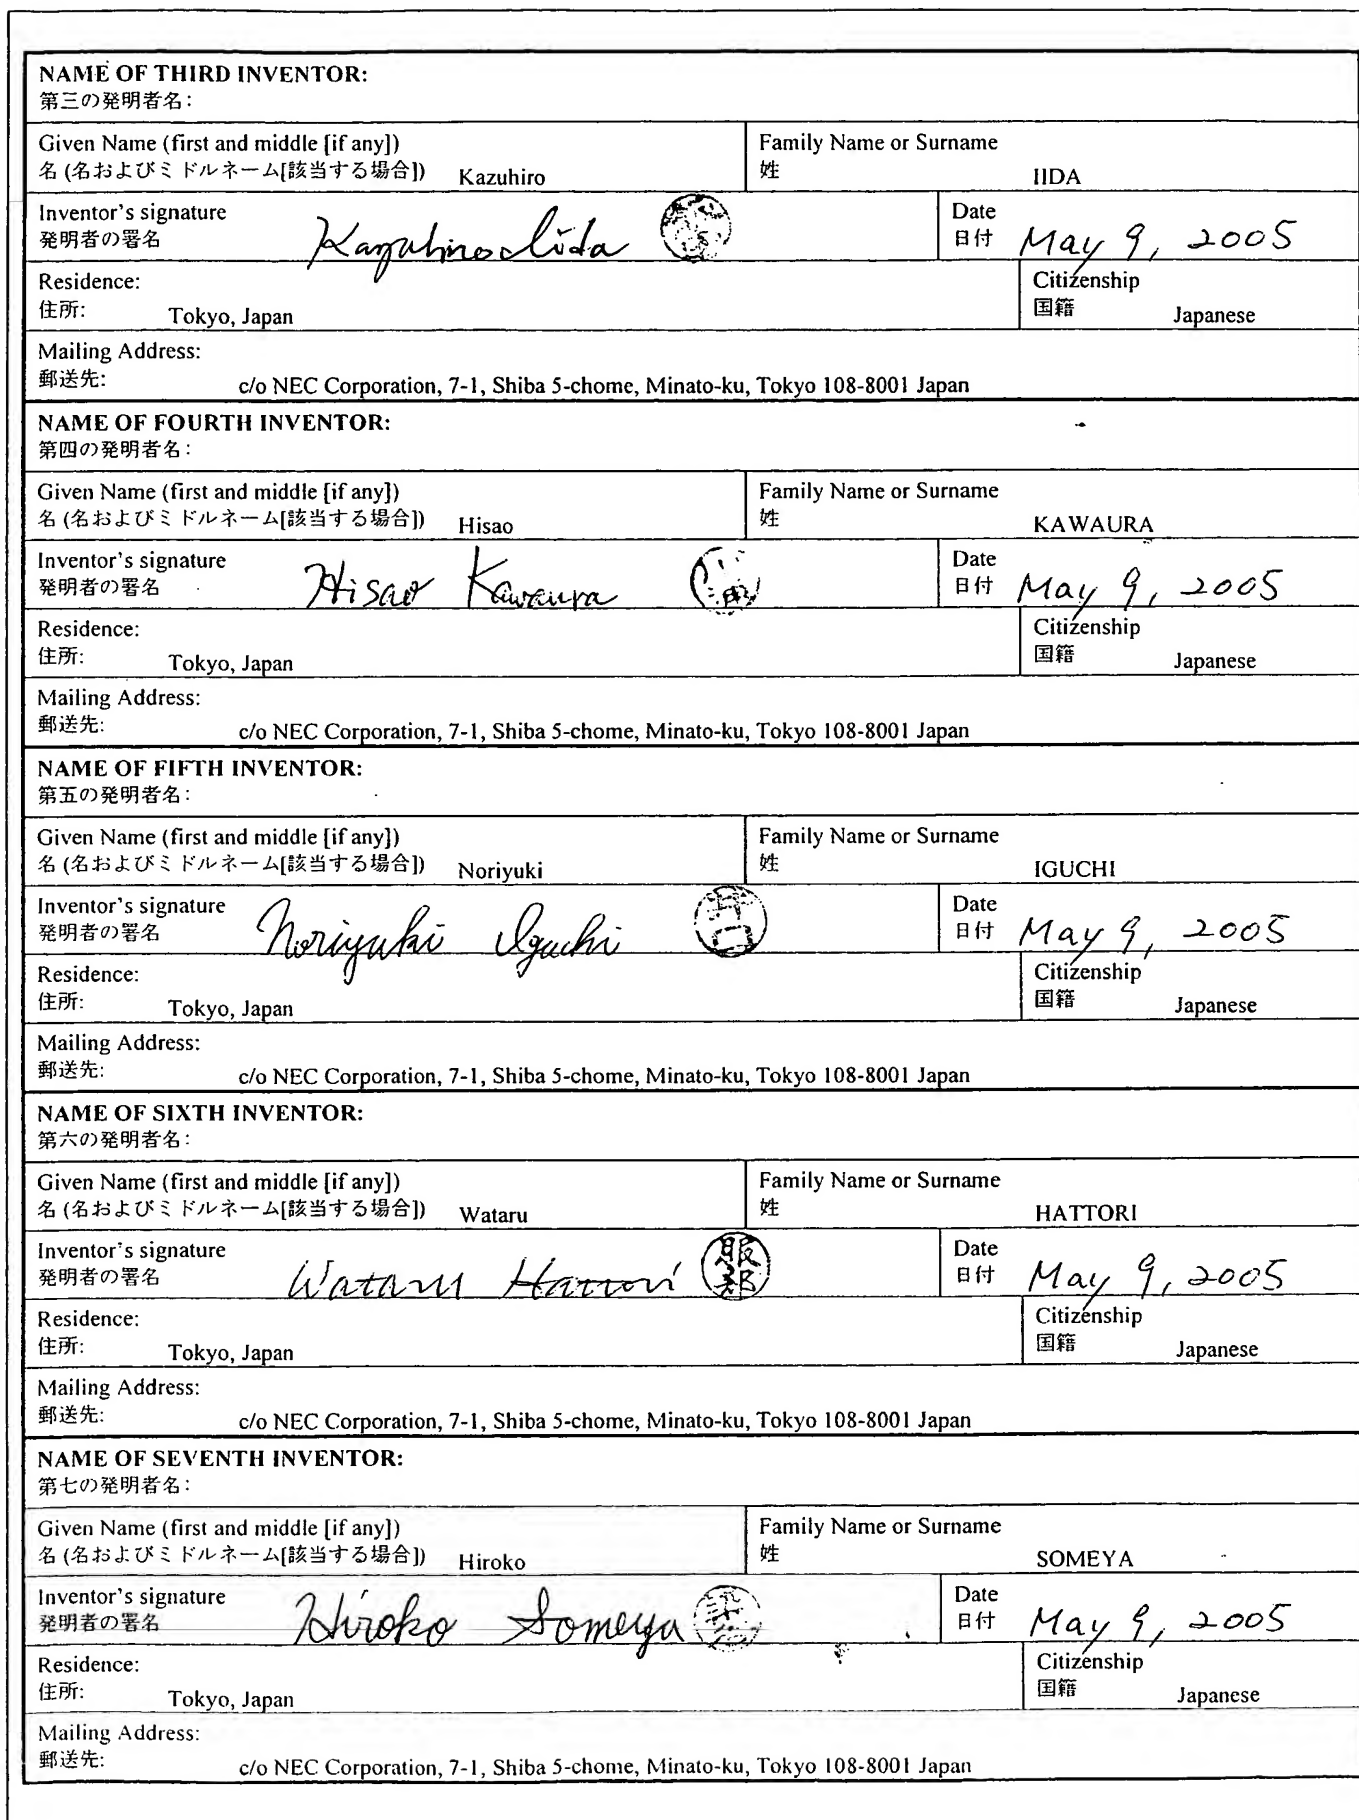 NAME OF THIRD INVENTOR:
第三の発明者名:
Given Name (first and middle [if any])
名 (名およびミドルネーム[該当する場合]) Kazuhiro
Family Name or Surname
姓 IIDA
Inventor's signature
発明者の署名 Kazuhiro Iida
Date
日付 May 9, 2005
Residence:
住所: Tokyo, Japan
Citizenship
国籍 Japanese
Mailing Address:
郵送先: c/o NEC Corporation, 7-1, Shiba 5-chome, Minato-ku, Tokyo 108-8001 Japan
NAME OF FOURTH INVENTOR:
第四の発明者名:
Given Name (first and middle [if any])
名 (名およびミドルネーム[該当する場合]) Hisao
Family Name or Surname
姓 KAWAURA
Inventor's signature
発明者の署名 Hisao Kawaura
Date
日付 May 9, 2005
Residence:
住所: Tokyo, Japan
Citizenship
国籍 Japanese
Mailing Address:
郵送先: c/o NEC Corporation, 7-1, Shiba 5-chome, Minato-ku, Tokyo 108-8001 Japan
NAME OF FIFTH INVENTOR:
第五の発明者名:
Given Name (first and middle [if any])
名 (名およびミドルネーム[該当する場合]) Noriyuki
Family Name or Surname
姓 IGUCHI
Inventor's signature
発明者の署名 Noriyuki Iguchi 井口
Date
日付 May 9, 2005
Residence:
住所: Tokyo, Japan
Citizenship
国籍 Japanese
Mailing Address:
郵送先: c/o NEC Corporation, 7-1, Shiba 5-chome, Minato-ku, Tokyo 108-8001 Japan
NAME OF SIXTH INVENTOR:
第六の発明者名:
Given Name (first and middle [if any])
名 (名およびミドルネーム[該当する場合]) Wataru
Family Name or Surname
姓 HATTORI
Inventor's signature
発明者の署名 Wataru Hattori 服部
Date
日付 May 9, 2005
Residence:
住所: Tokyo, Japan
Citizenship
国籍 Japanese
Mailing Address:
郵送先: c/o NEC Corporation, 7-1, Shiba 5-chome, Minato-ku, Tokyo 108-8001 Japan
NAME OF SEVENTH INVENTOR:
第七の発明者名:
Given Name (first and middle [if any])
名 (名およびミドルネーム[該当する場合]) Hiroko
Family Name or Surname
姓 SOMEYA
Inventor's signature
発明者の署名 Hiroko Someya
Date
日付 May 9, 2005
Residence:
住所: Tokyo, Japan
Citizenship
国籍 Japanese
Mailing Address:
郵送先: c/o NEC Corporation, 7-1, Shiba 5-chome, Minato-ku, Tokyo 108-8001 Japan